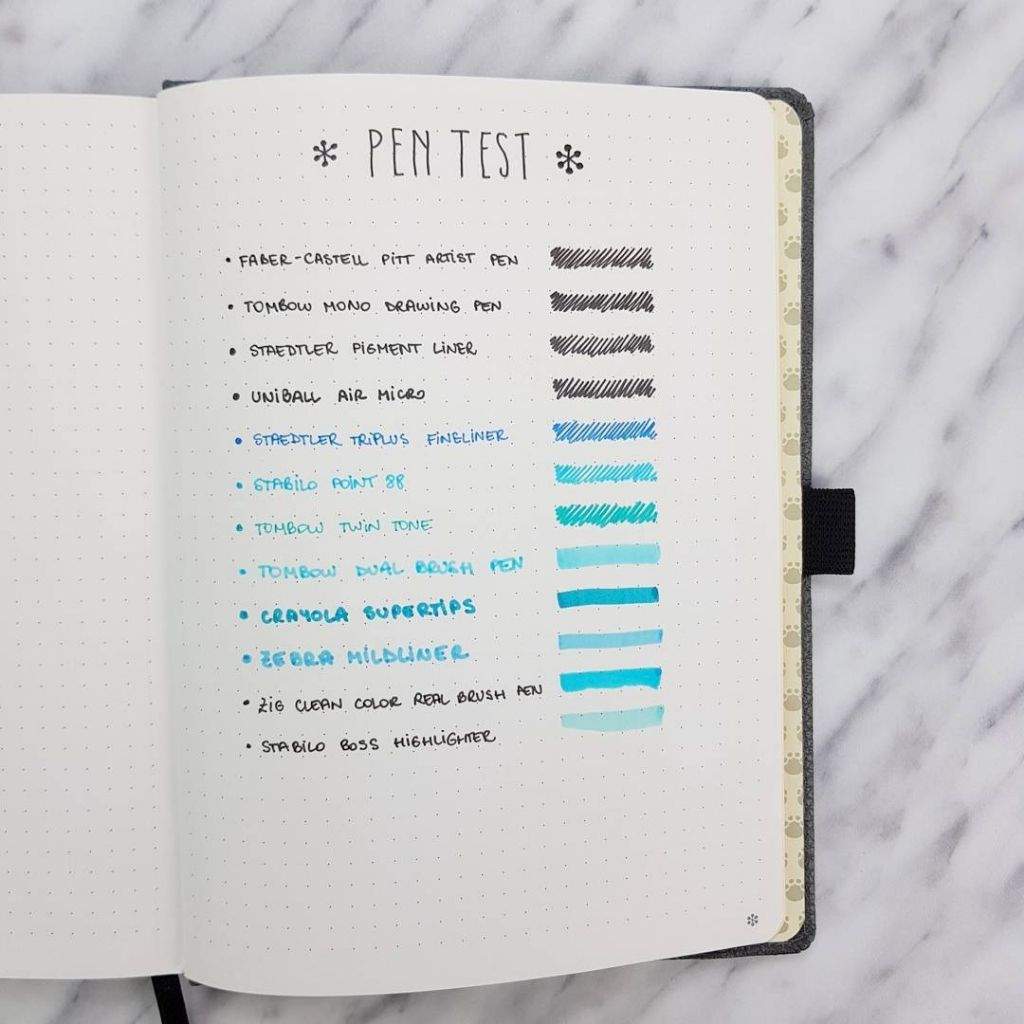 * PEN TEST *
• FABER-CASTELL PITT ARTIST PEN
• TOMBOW MONO DRAWING PEN
• STAEDTLER PIGMENT LINER
• UNIBALL AIR MICRO
• STAEDTLER TRIPLUS FINELINER
• STABILO POINT 88
• TOMBOW TWIN TONE
• TOMBOW DUAL BRUSH PEN
• CRAYOLA SUPERTIPS
• ZEBRA MILDLINER
• ZIG CLEAN COLOR REAL BRUSH PEN
• STABILO BOSS HIGHLIGHTER